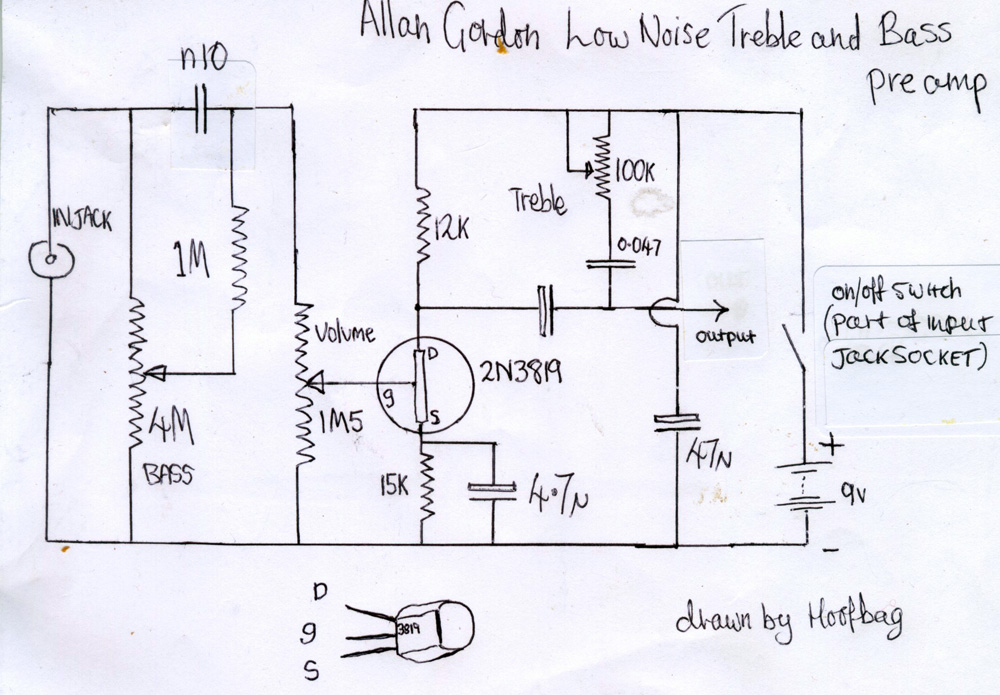 Allan Gordon Low Noise Treble and Bass
Pre amp
n10
IN JACK
1M
4M
BASS
Volume
1M5
12K
Treble
100K
0.047
output
D
g
S
2N3819
15K
4.7N
47N
on/off switch
(part of input
JACK SOCKET)
+
9v
-
D
g
S
3819
drawn by Hoofbag